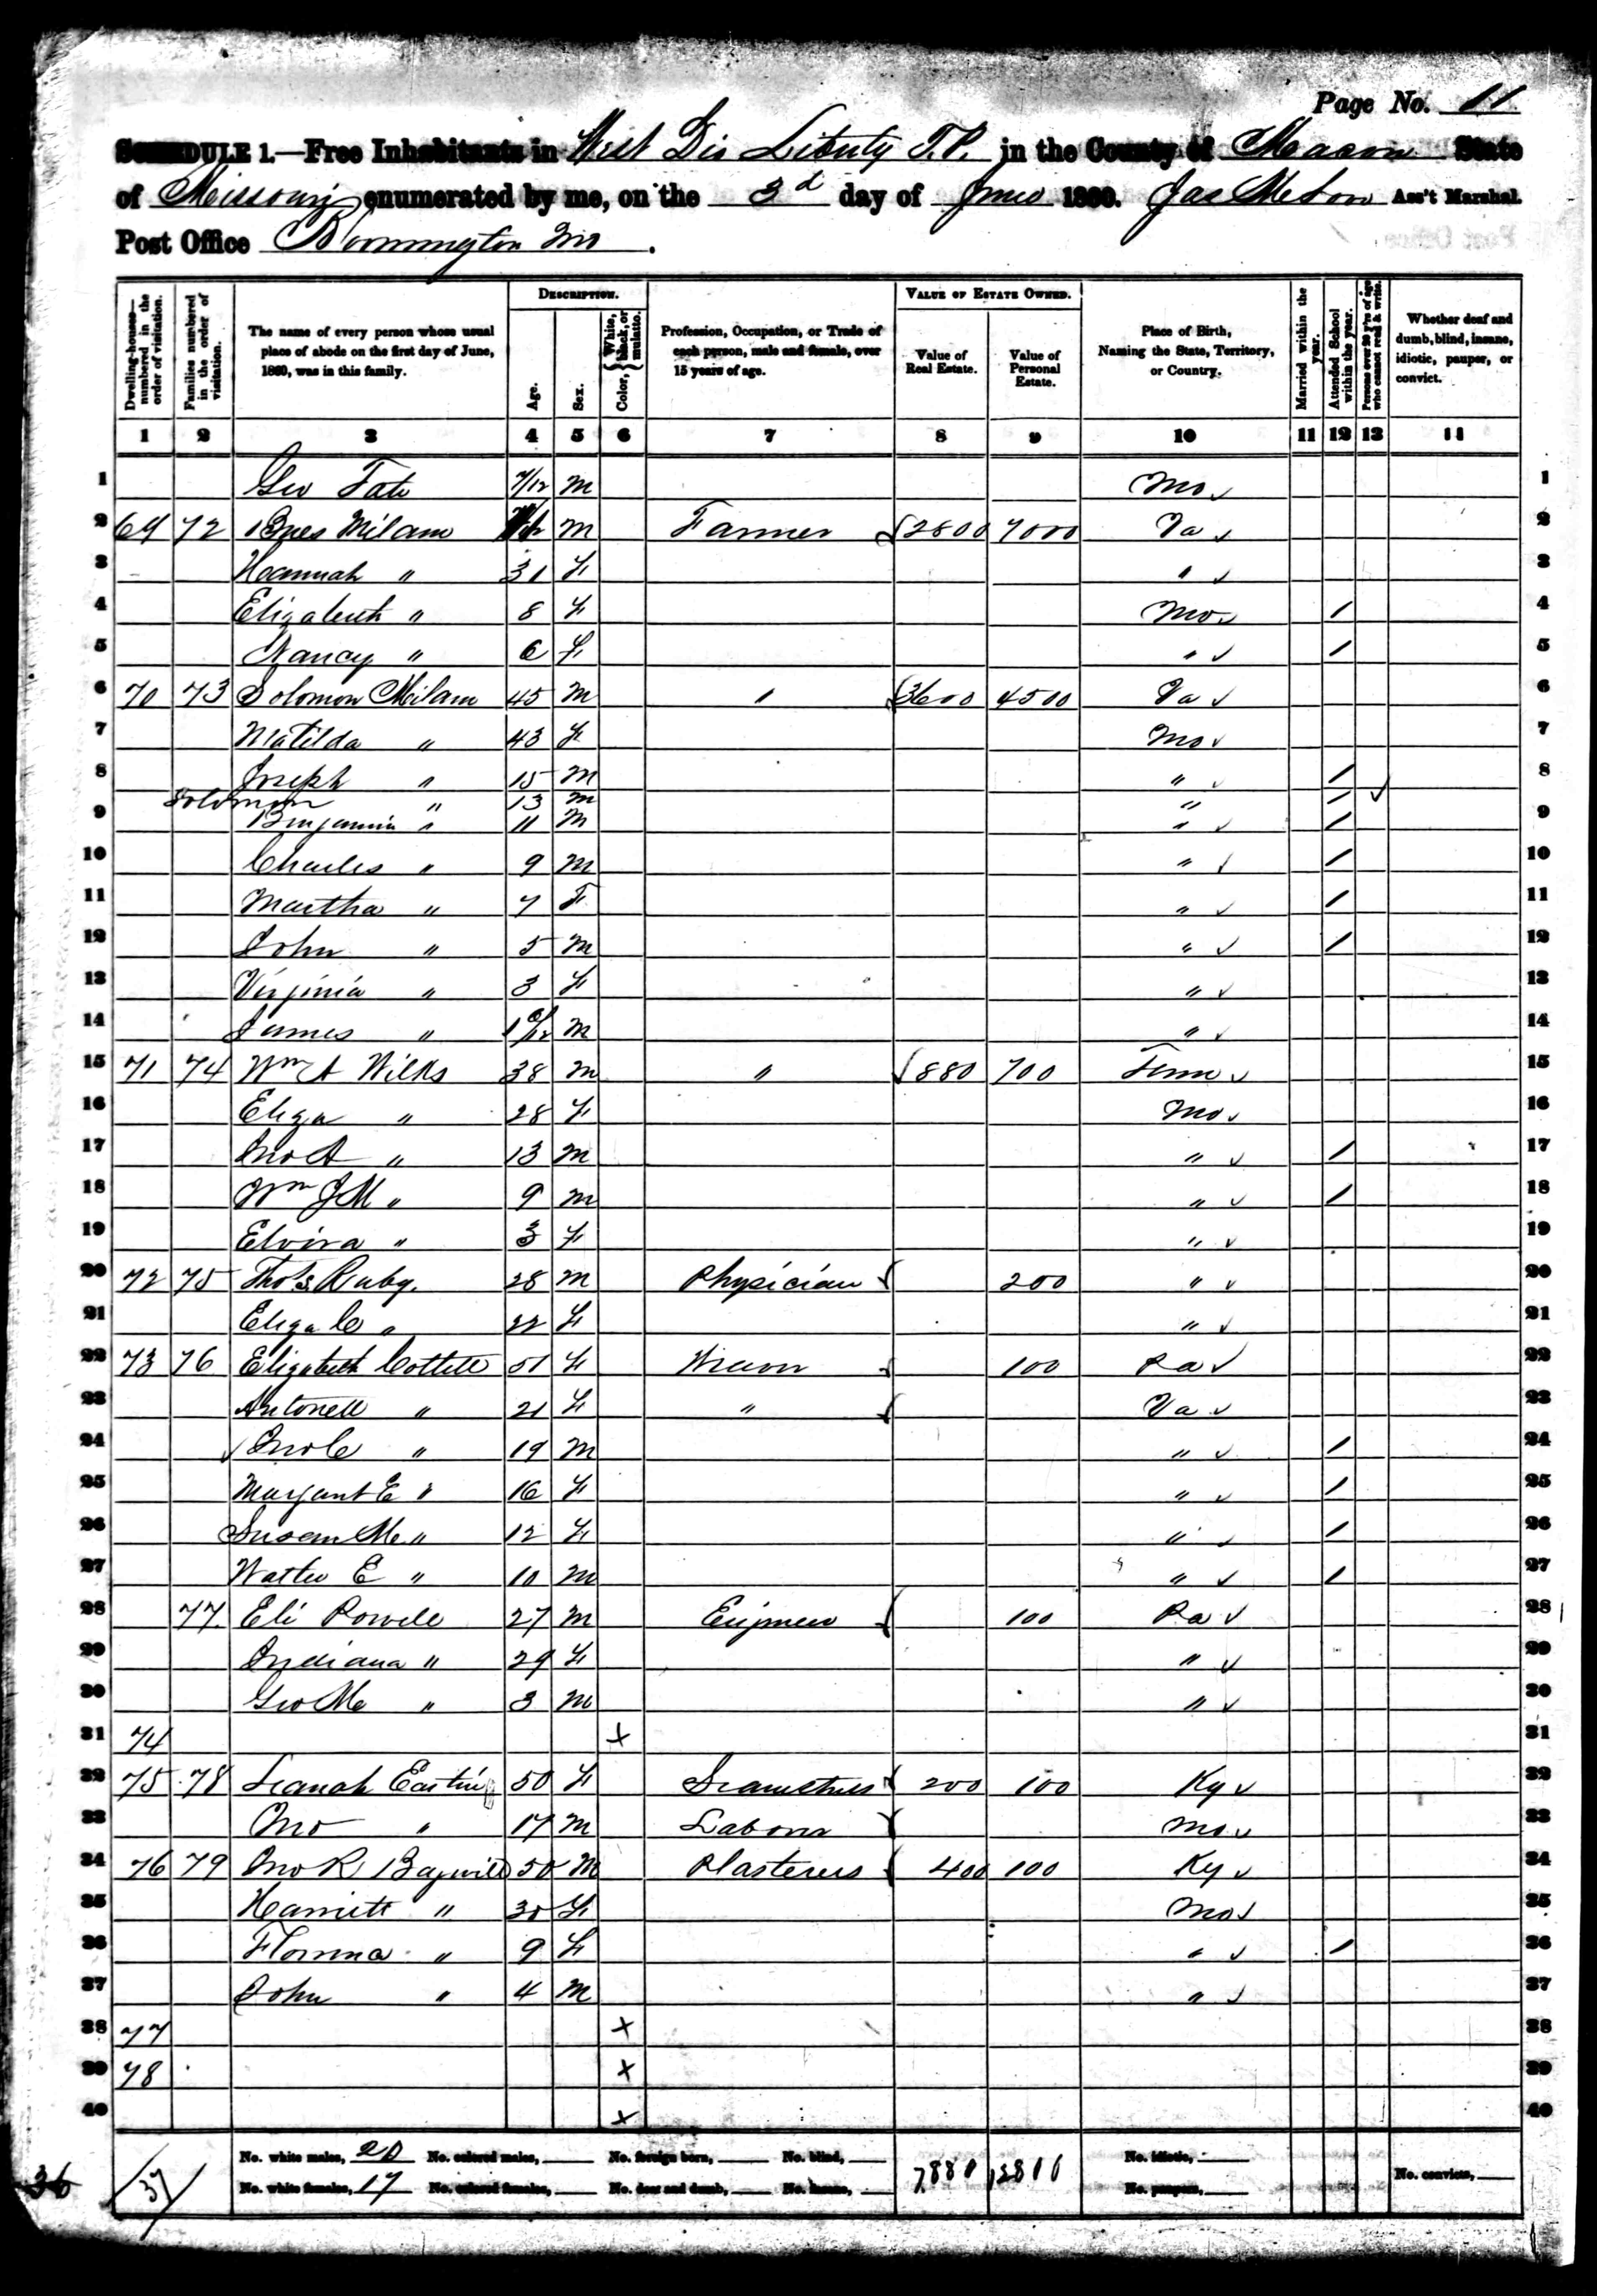 Page No. 11
SCHEDULE 1.—Free Inhabitants in West Dis Liberty T.P. in the County of Macon State
of Missouri enumerated by me, on the 3d day of June 1860. Jas Ass't Marshal.
Post Office Bloomington Mo.
Dwelling-houses—numbered in the order of visitation.
Families numbered in the order of visitation.
The name of every person whose usual place of abode on the first day of June, 1860, was in this family.
DESCRIPTION.
Age.
Sex.
Color, { White, black, or mulatto.
Profession, Occupation, or Trade of each person, male and female, over 15 years of age.
VALUE OF ESTATE OWNED.
Value of Real Estate.
Value of Personal Estate.
Place of Birth, Naming the State, Territory, or Country.
Married within the year.
Attended School within the year.
Persons over 20 y'rs of age who cannot read & write.
Whether deaf and dumb, blind, insane, idiotic, pauper, or convict.
1 2 3 4 5 6 7 8 9 10 11 12 13 14
1 Geo Tate 7/12 M Mo 1
2 69 72 Milam M Farmer 2800 7000 Va 2
3 Hannah " 31 F " 3
4 Elizabeth " 8 F Mo / 4
5 Nancy " 6 F " / 5
6 70 73 Solomon Milam 45 M " 3600 4500 Va 6
7 Matilda " 43 F Mo 7
8 Joseph " 15 M " / 8
Solomon " 13 M " /
9 Benjamin " 11 M " / 9
10 Charles " 9 M " / 10
11 Martha " 7 F " / 11
12 John " 5 M " / 12
13 Virginia " 3 F " 13
14 James " M " 14
15 71 74 Wm A Wilks 38 M " 880 700 Tenn 15
16 Eliza " 28 F Mo 16
17 Jno A " 13 M " / 17
18 Wm J M " 9 M " / 18
19 Elvira " 3 F " 19
20 72 75 Thos Ruby. 28 M Physician 200 " 20
21 Eliza C " 22 F " 21
22 73 76 Elizabeth Cottell 51 F Weaver 100 Pa 22
23 Antonell " 21 F " Va 23
24 Jno C " 19 M " / 24
25 Margaret E " 16 F " / 25
26 Susan M " 12 F " / 26
27 Walter E " 10 M " / 27
28 77. Eli Powell 27 M Engineer 100 Pa 28
29 Indiana " 29 F " 29
30 Geo M " 3 M " 30
31 74 + 31
32 75 78 Eastin 50 F Seamstress 200 100 Ky 32
33 Jno " 17 M Laborer Mo 33
34 76 79 Jno R 50 M Plasterer 400 100 Ky 34
35 Harriett " 30 F Mo 35
36 " 9 F " / 36
37 John " 4 M " 37
38 77 + 38
39 78 + 39
40 + 40
No. white males, 20 No. colored males, No. foreign born, No. blind, 7880 12800 No. idiotic,
No. white females, 17 No. colored females, No. deaf and dumb, No. insane, No. paupers, No. convicts,
36 37